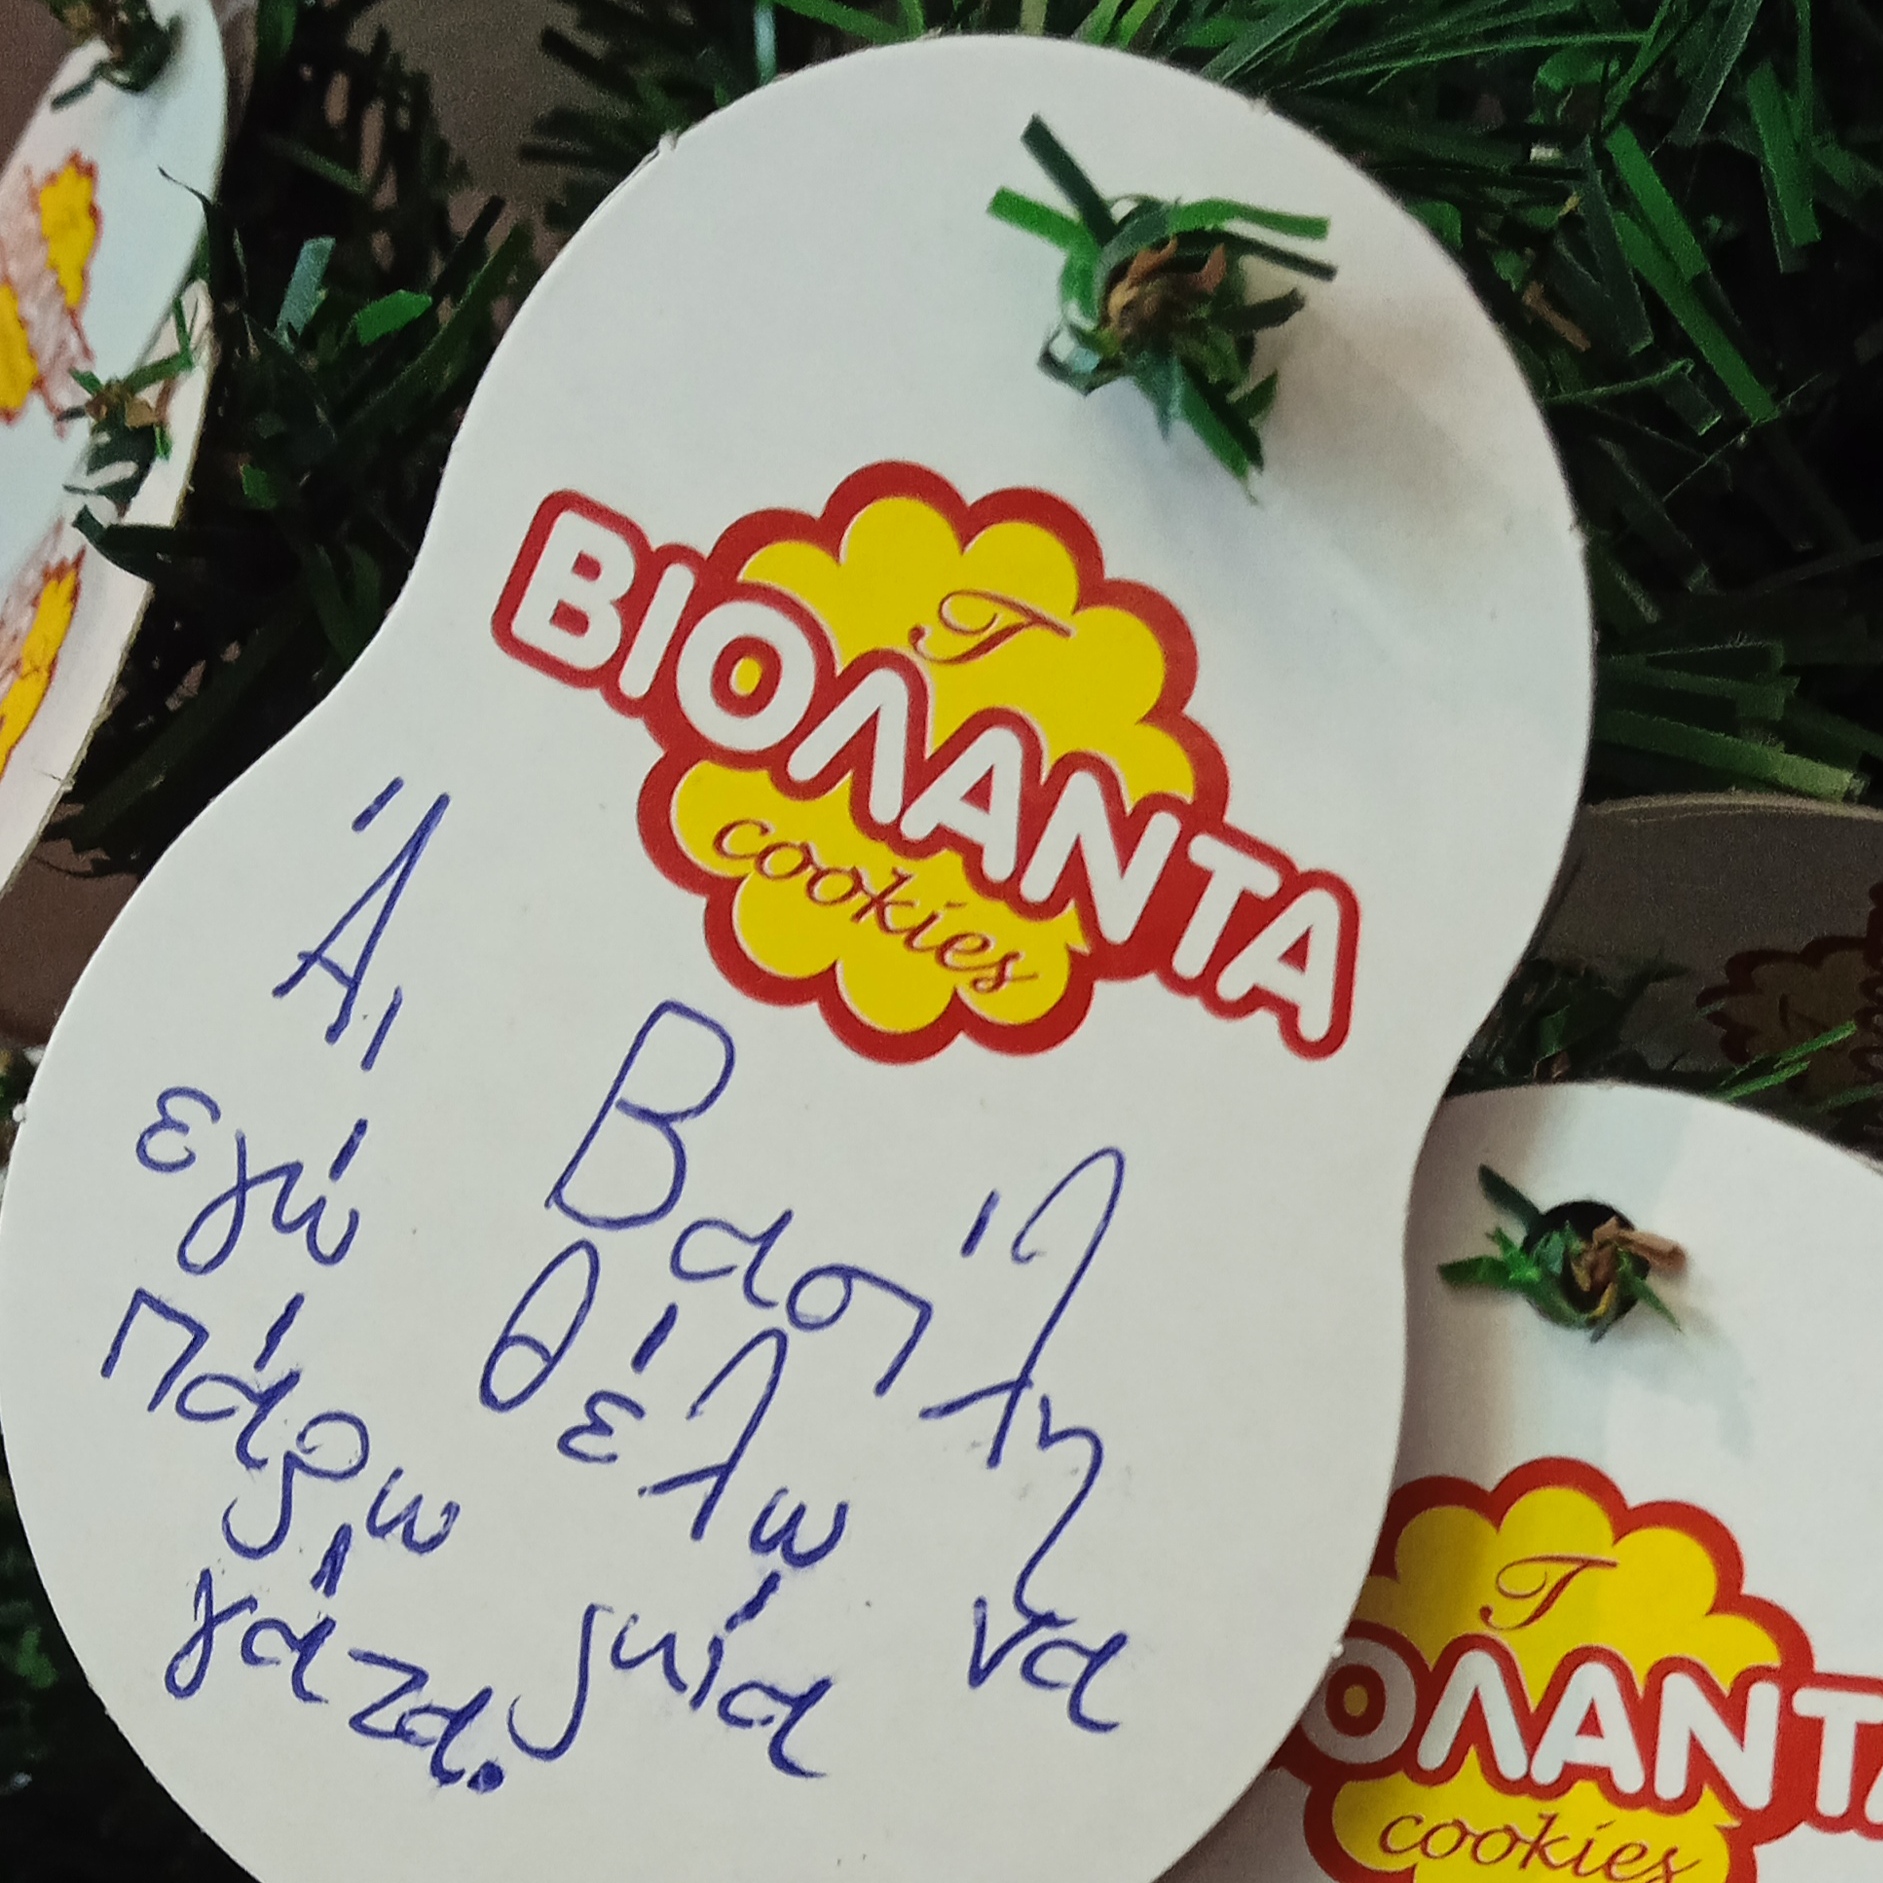 Τ
ΒΙΟΛΑΝΤΑ
cookies
Άι Βασίλη
εγώ θέλω να
πάρω μία
γάτα.
Τ
ΟΛΑΝΤΑ
cookies